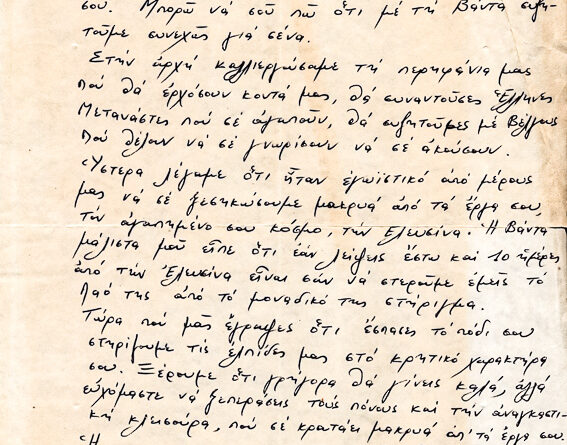 σου. Μπορῶ νά σοῦ πῶ ὅτι μέ τή Βάντα συζη-
τοῦμε συνεχῶς γιά σένα.
Στήν ἀρχή καλλιεργήσαμε τή περηφάνια μας
πού θά ἐρχόσουν κοντά μας, θά συναντοῦσες Ἕλληνες
Μετανάστες πού σέ ἀγαποῦν, θά συζητοῦσες μέ Βέλγους
πού θέλουν νά σέ γνωρίσουν νά σέ ἀκούσουν.
Ὕστερα λέγαμε ὅτι ἦταν ἐγωϊστικό ἀπό μέρους
μας νά σέ ξεσηκώσουμε μακρυά ἀπό τά ἔργα σου,
τόν ἀγαπημένο σου κόσμο, τήν Ἐλευσίνα. Ἡ Βάντα
μάλιστα μοῦ εἶπε ὅτι ἐάν λείψεις ἔστω καί 10 ἡμέρες
ἀπό τήν Ἐλευσίνα εἶναι σάν νά στεροῦμε ἐμεῖς τό
λαό της ἀπό τό μοναδικό της στήριγμα.
Τώρα πού μᾶς ἔγραψες ὅτι ἔσπασες τό πόδι σου
στηρίζουμε τίς ἐλπίδες μας στό κρητικό χαρακτήρα
σου. Ξέρουμε ὅτι γρήγορα θά γίνεις καλά, ἀλλά
εὐχόμαστε νά ξεπεράσεις τούς πόνους καί τήν ἀναγκαστι-
κή κλεισούρα, πού σέ κρατάει μακρυά ἀπ' τά ἔργα σου.
Ἡ